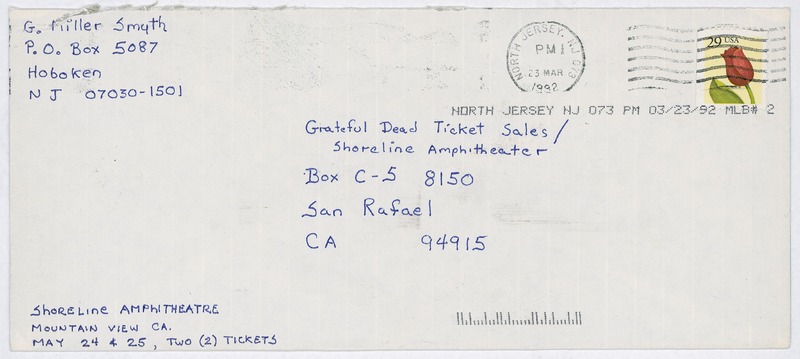 G. Miller Smyth
P.O. Box 5087
Hoboken
NJ 07030-1501
NORTH JERSEY, NJ 073
PM
23 MAR
1992
29 USA
NORTH JERSEY NJ 073 PM 03/23/92 MLB# 2
Grateful Dead Ticket Sales/
Shoreline Amphitheater
Box C-S 8150
San Rafael
CA 94915
SHORELINE AMPHITHEATRE
MOUNTAIN VIEW CA.
MAY 24 & 25, TWO (2) TICKETS